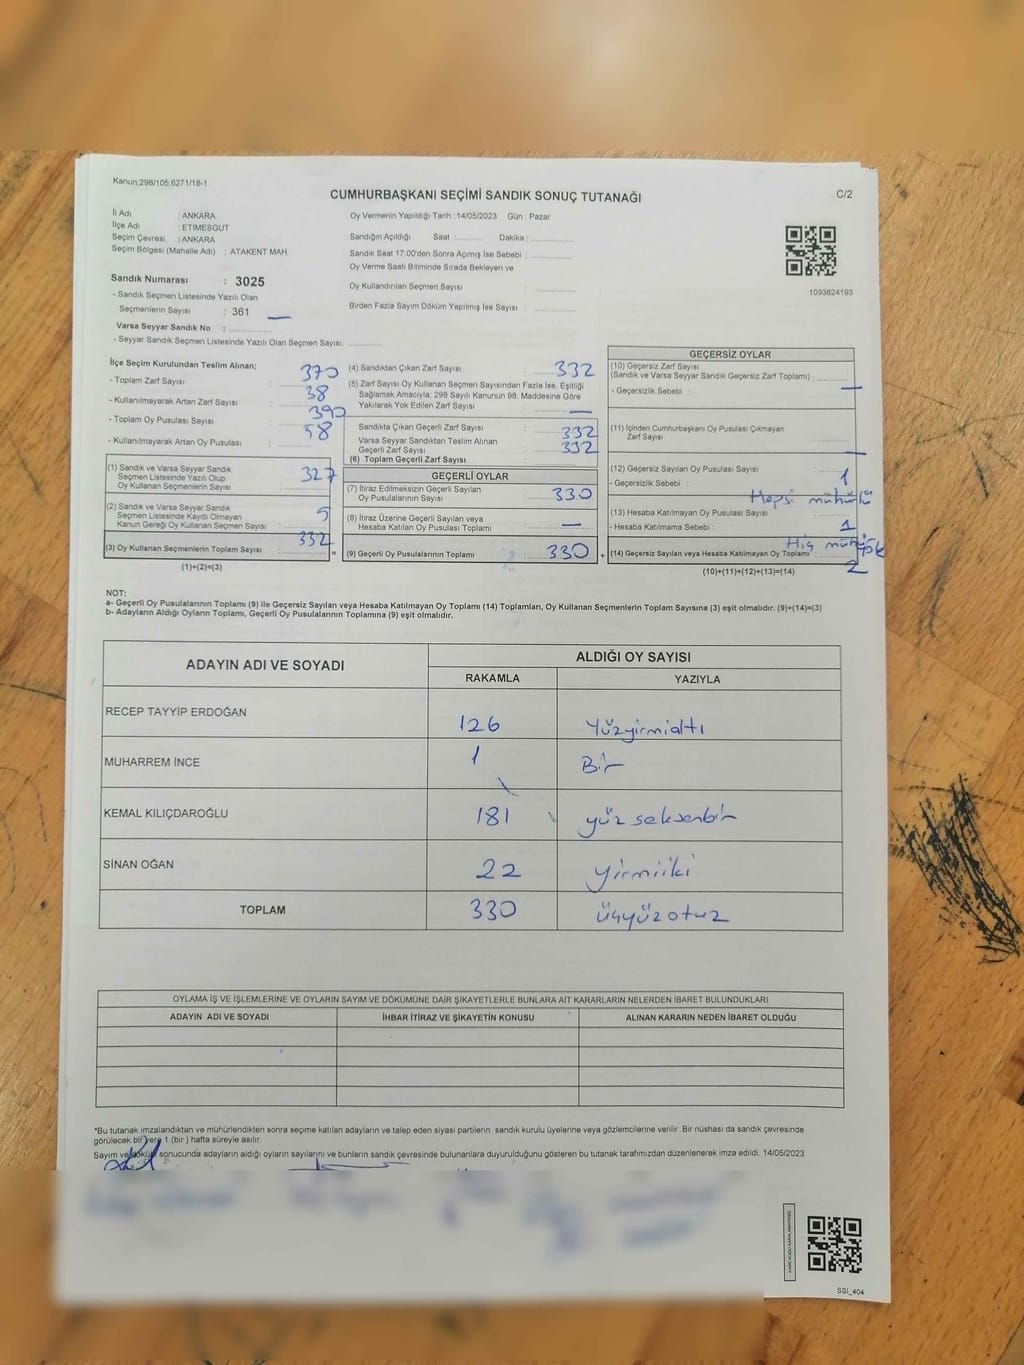 Kanun;298/105;6271/18-1
CUMHURBAŞKANI SEÇİMİ SANDIK SONUÇ TUTANAĞI
C/2
İl Adı : ANKARA
İlçe Adı : ETİMESGUT
Seçim Çevresi : ANKARA
Seçim Bölgesi (Mahalle Adı) : ATAKENT MAH.
Oy Vermenin Yapıldığı Tarih :14/05/2023 Gün : Pazar
Sandığın Açıldığı Saat :......... Dakika :.............
Sandık Saat 17:00'den Sonra Açımış İse Sebebi :.............
Oy Verme Saati Bitiminde Sırada Bekleyen ve
Oy Kullandırılan Seçmen Sayısı :.............
Birden Fazla Sayım Döküm Yapılmış İse Sayısı :.............
1093824193
Sandık Numarası : 3025
- Sandık Seçmen Listesinde Yazılı Olan
Seçmenlerin Sayısı : 361 —
Varsa Seyyar Sandık No :.............
- Seyyar Sandık Seçmen Listesinde Yazılı Olan Seçmen Sayısı:.............
İlçe Seçim Kurulundan Teslim Alınan;
- Toplam Zarf Sayısı : 370
- Kullanılmayarak Artan Zarf Sayısı : 38
- Toplam Oy Pusulası Sayısı : 390
- Kullanılmayarak Artan Oy Pusulası : 58
(1) Sandık ve Varsa Seyyar Sandık
Seçmen Listesinde Yazılı Olup
Oy Kullanan Seçmenlerin Sayısı : 327
(2) Sandık ve Varsa Seyyar Sandık
Seçmen Listesinde Kayıtlı Olmayan
Kanun Gereği Oy Kullanan Seçmen Sayısı : 5
(3) Oy Kullanan Seçmenlerin Toplam Sayısı : 332 =
(1)+(2)=(3)
(4) Sandıktan Çıkan Zarf Sayısı : 332
(5) Zarf Sayısı Oy Kullanan Seçmen Sayısından Fazla İse, Eşitliği
Sağlamak Amacıyla; 298 Sayılı Kanunun 98. Maddesine Göre
Yakılarak Yok Edilen Zarf Sayısı : —
Sandıkta Çıkan Geçerli Zarf Sayısı : 332
Varsa Seyyar Sandıktan Teslim Alınan
Geçerli Zarf Sayısı : 332
(6) Toplam Geçerli Zarf Sayısı :.............
GEÇERLİ OYLAR
(7) İtiraz Edilmeksizin Geçerli Sayılan
Oy Pusulalarının Sayısı : 330
(8) İtiraz Üzerine Geçerli Sayılan veya
Hesaba Katılan Oy Pusulası Toplamı : —
(9) Geçerli Oy Pusulalarının Toplamı : 330 +
GEÇERSİZ OYLAR
(10) Geçersiz Zarf Sayısı
(Sandık ve Varsa Seyyar Sandık Geçersiz Zarf Toplamı) :.........
- Geçersizlik Sebebi : —
(11) İçinden Cumhurbaşkanı Oy Pusulası Çıkmayan
Zarf Sayısı : —
(12) Geçersiz Sayılan Oy Pusulası Sayısı : 1
- Geçersizlik Sebebi : Hepsi mühürlü
(13) Hesaba Katılmayan Oy Pusulası Sayısı : 1
- Hesaba Katılmama Sebebi : Hiç mühür yok
(14) Geçersiz Sayılan veya Hesaba Katılmayan Oy Toplamı : 2
(10)+(11)+(12)+(13)=(14)
NOT:
a- Geçerli Oy Pusulalarının Toplamı (9) ile Geçersiz Sayılan veya Hesaba Katılmayan Oy Toplamı (14) Toplamları, Oy Kullanan Seçmenlerin Toplam Sayısına (3) eşit olmalıdır. (9)+(14)=(3)
b- Adayların Aldığı Oyların Toplamı, Geçerli Oy Pusulalarının Toplamına (9) eşit olmalıdır.
ADAYIN ADI VE SOYADI ALDIĞI OY SAYISI
RAKAMLA YAZIYLA
RECEP TAYYİP ERDOĞAN 126 Yüzyirmialtı
MUHARREM İNCE 1 Bir
KEMAL KILIÇDAROĞLU 181 yüz seksenbir
SİNAN OĞAN 22 yirmiiki
TOPLAM 330 üçyüzotuz
OYLAMA İŞ VE İŞLEMLERİNE VE OYLARIN SAYIM VE DÖKÜMÜNE DAİR ŞİKAYETLERLE BUNLARA AİT KARARLARIN NELERDEN İBARET BULUNDUKLARI
ADAYIN ADI VE SOYADI İHBAR İTİRAZ VE ŞİKAYETİN KONUSU ALINAN KARARIN NEDEN İBARET OLDUĞU
*Bu tutanak imzalandıktan ve mühürlendikten sonra seçime katılan adayların ve talep eden siyasi partilerin sandık kurulu üyelerine veya gözlemcilerine verilir. Bir nüshası da sandık çevresinde
görülecek bir yere 1 (bir ) hafta süreyle asılır.
Sayım ve döküm sonucunda adayların aldığı oyların sayılarını ve bunların sandık çevresinde bulunanlara duyurulduğunu gösteren bu tutanak tarafımızdan düzenlenerek imza edildi. 14/05/2023
SSI_404